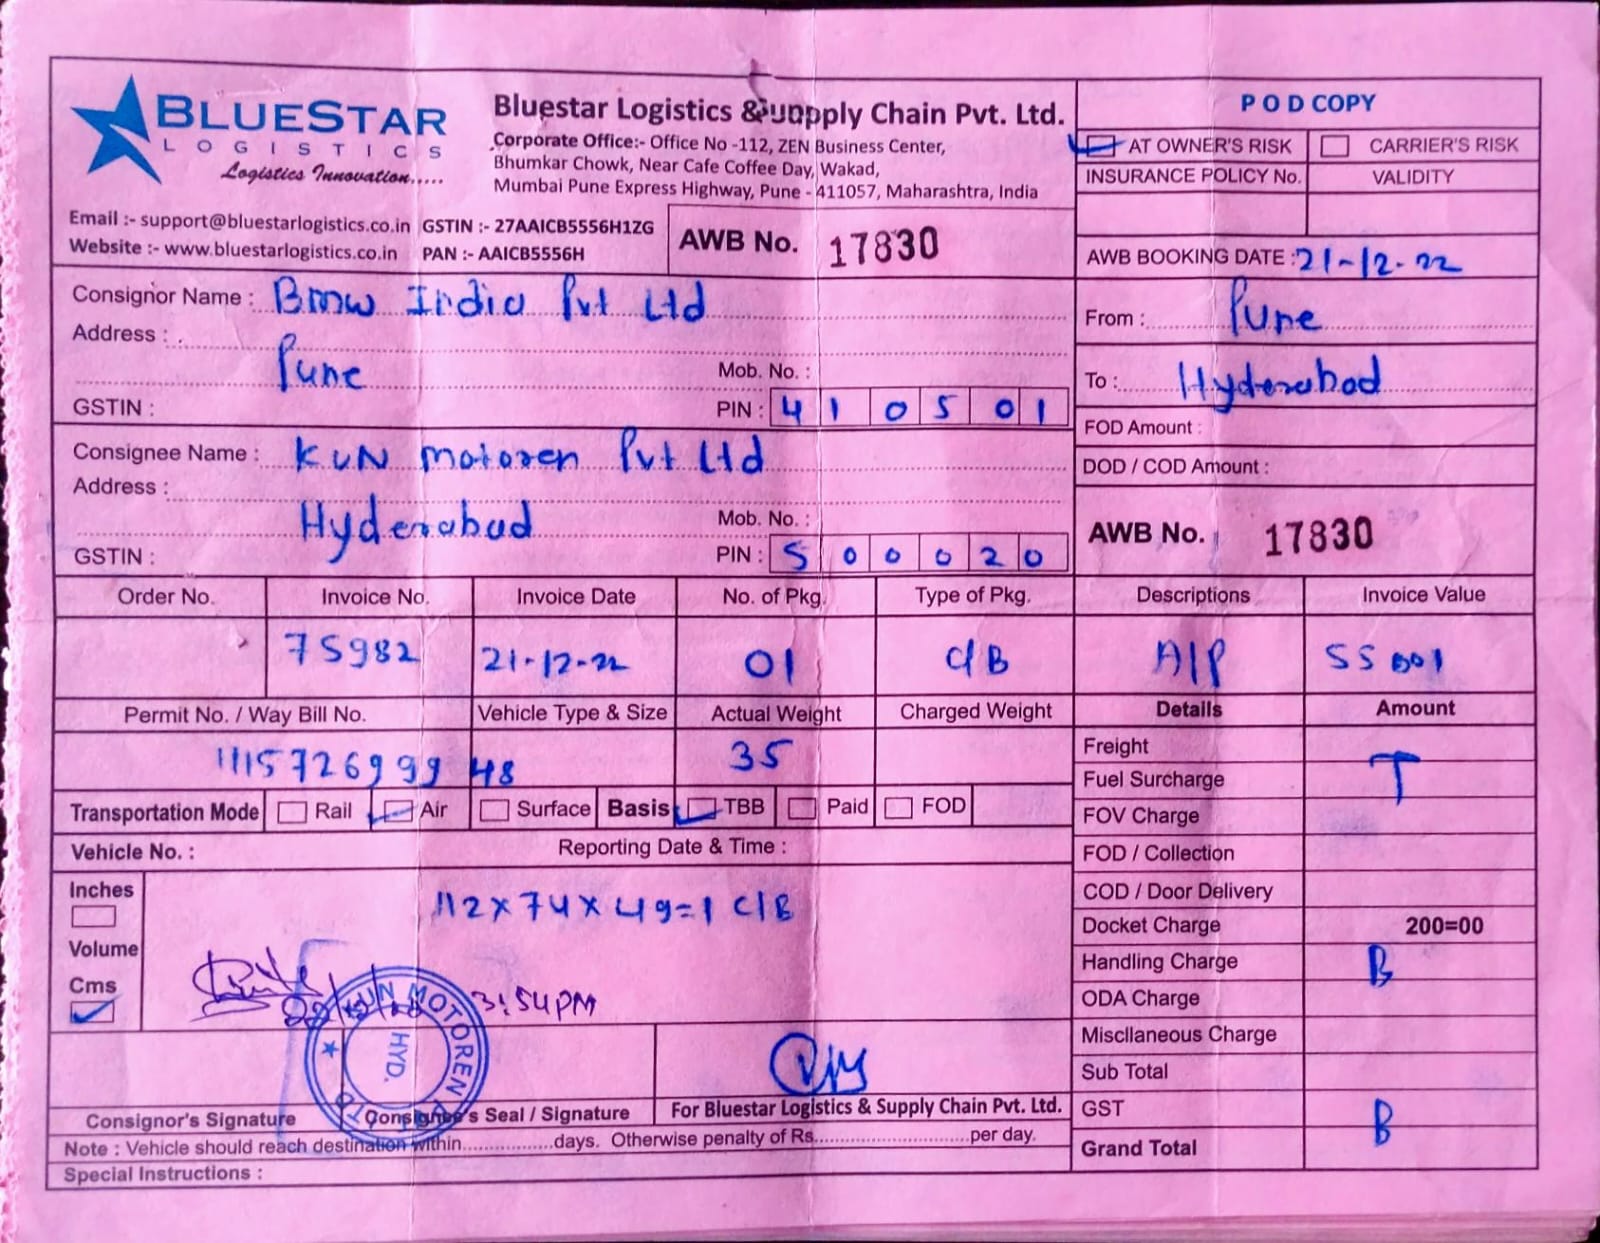 BLUESTAR
LOGISTICS
Logistics Innovation.....
Bluestar Logistics & Supply Chain Pvt. Ltd.
Corporate Office:- Office No -112, ZEN Business Center,
Bhumkar Chowk, Near Cafe Coffee Day, Wakad,
Mumbai Pune Express Highway, Pune - 411057, Maharashtra, India
Email :- support@bluestarlogistics.co.in GSTIN :- 27AAICB5556H1ZG
Website :- www.bluestarlogistics.co.in PAN :- AAICB5556H
AWB No. 17830
P O D COPY
AT OWNER'S RISK CARRIER'S RISK
INSURANCE POLICY No. VALIDITY
AWB BOOKING DATE : 21-12-22
Consignor Name : BMW India Pvt Ltd
Address :
Pune
Mob. No. :
GSTIN : PIN : 410501
From : Pune
To : Hyderabad
FOD Amount :
DOD / COD Amount :
Consignee Name : KUN Motoren Pvt Ltd
Address :
Hyderabad
Mob. No. :
GSTIN : PIN : 500020
AWB No. 17830
Order No. Invoice No. Invoice Date No. of Pkg. Type of Pkg. Descriptions Invoice Value
75982 21-12-22 01 C/B A/P
Permit No. / Way Bill No. Vehicle Type & Size Actual Weight Charged Weight Details Amount
111572699948 35
Freight T
Fuel Surcharge
FOV Charge
FOD / Collection
COD / Door Delivery
Docket Charge 200=00
Handling Charge B
ODA Charge
Miscllaneous Charge
Sub Total
GST B
Grand Total
Transportation Mode Rail Air Surface Basis TBB Paid FOD
Vehicle No. : Reporting Date & Time :
Inches
Volume
Cms
112x74x49=1 C/B
3:54PM
KUN MOTOREN
HYD.
Consignor's Signature Consignee's Seal / Signature For Bluestar Logistics & Supply Chain Pvt. Ltd.
Note : Vehicle should reach destination within.................days. Otherwise penalty of Rs............................per day.
Special Instructions :